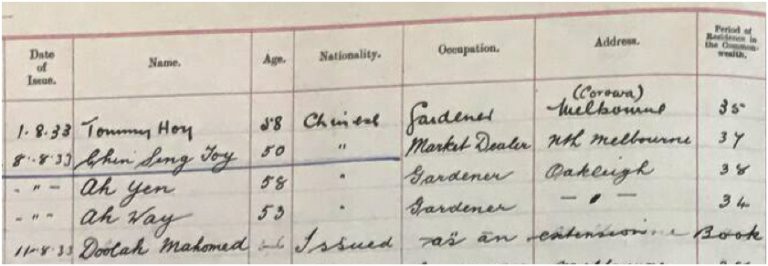 Date of Issue. Name. Age. Nationality. Occupation. Address. Period of Residence in the Commonwealth.
(Corowa)
1.8.33 Tommy Hoy 58 Chinese Gardener Melbourne 35
8.8.33 Chin Sing Toy 50 " Market Dealer Nth Melbourne 37
- " - Ah Yen 58 " Gardener Oakleigh 38
- " " Ah Way 53 " Gardener - " - 34
11-8-33 Doolah Mahomed Issued as an extension Book